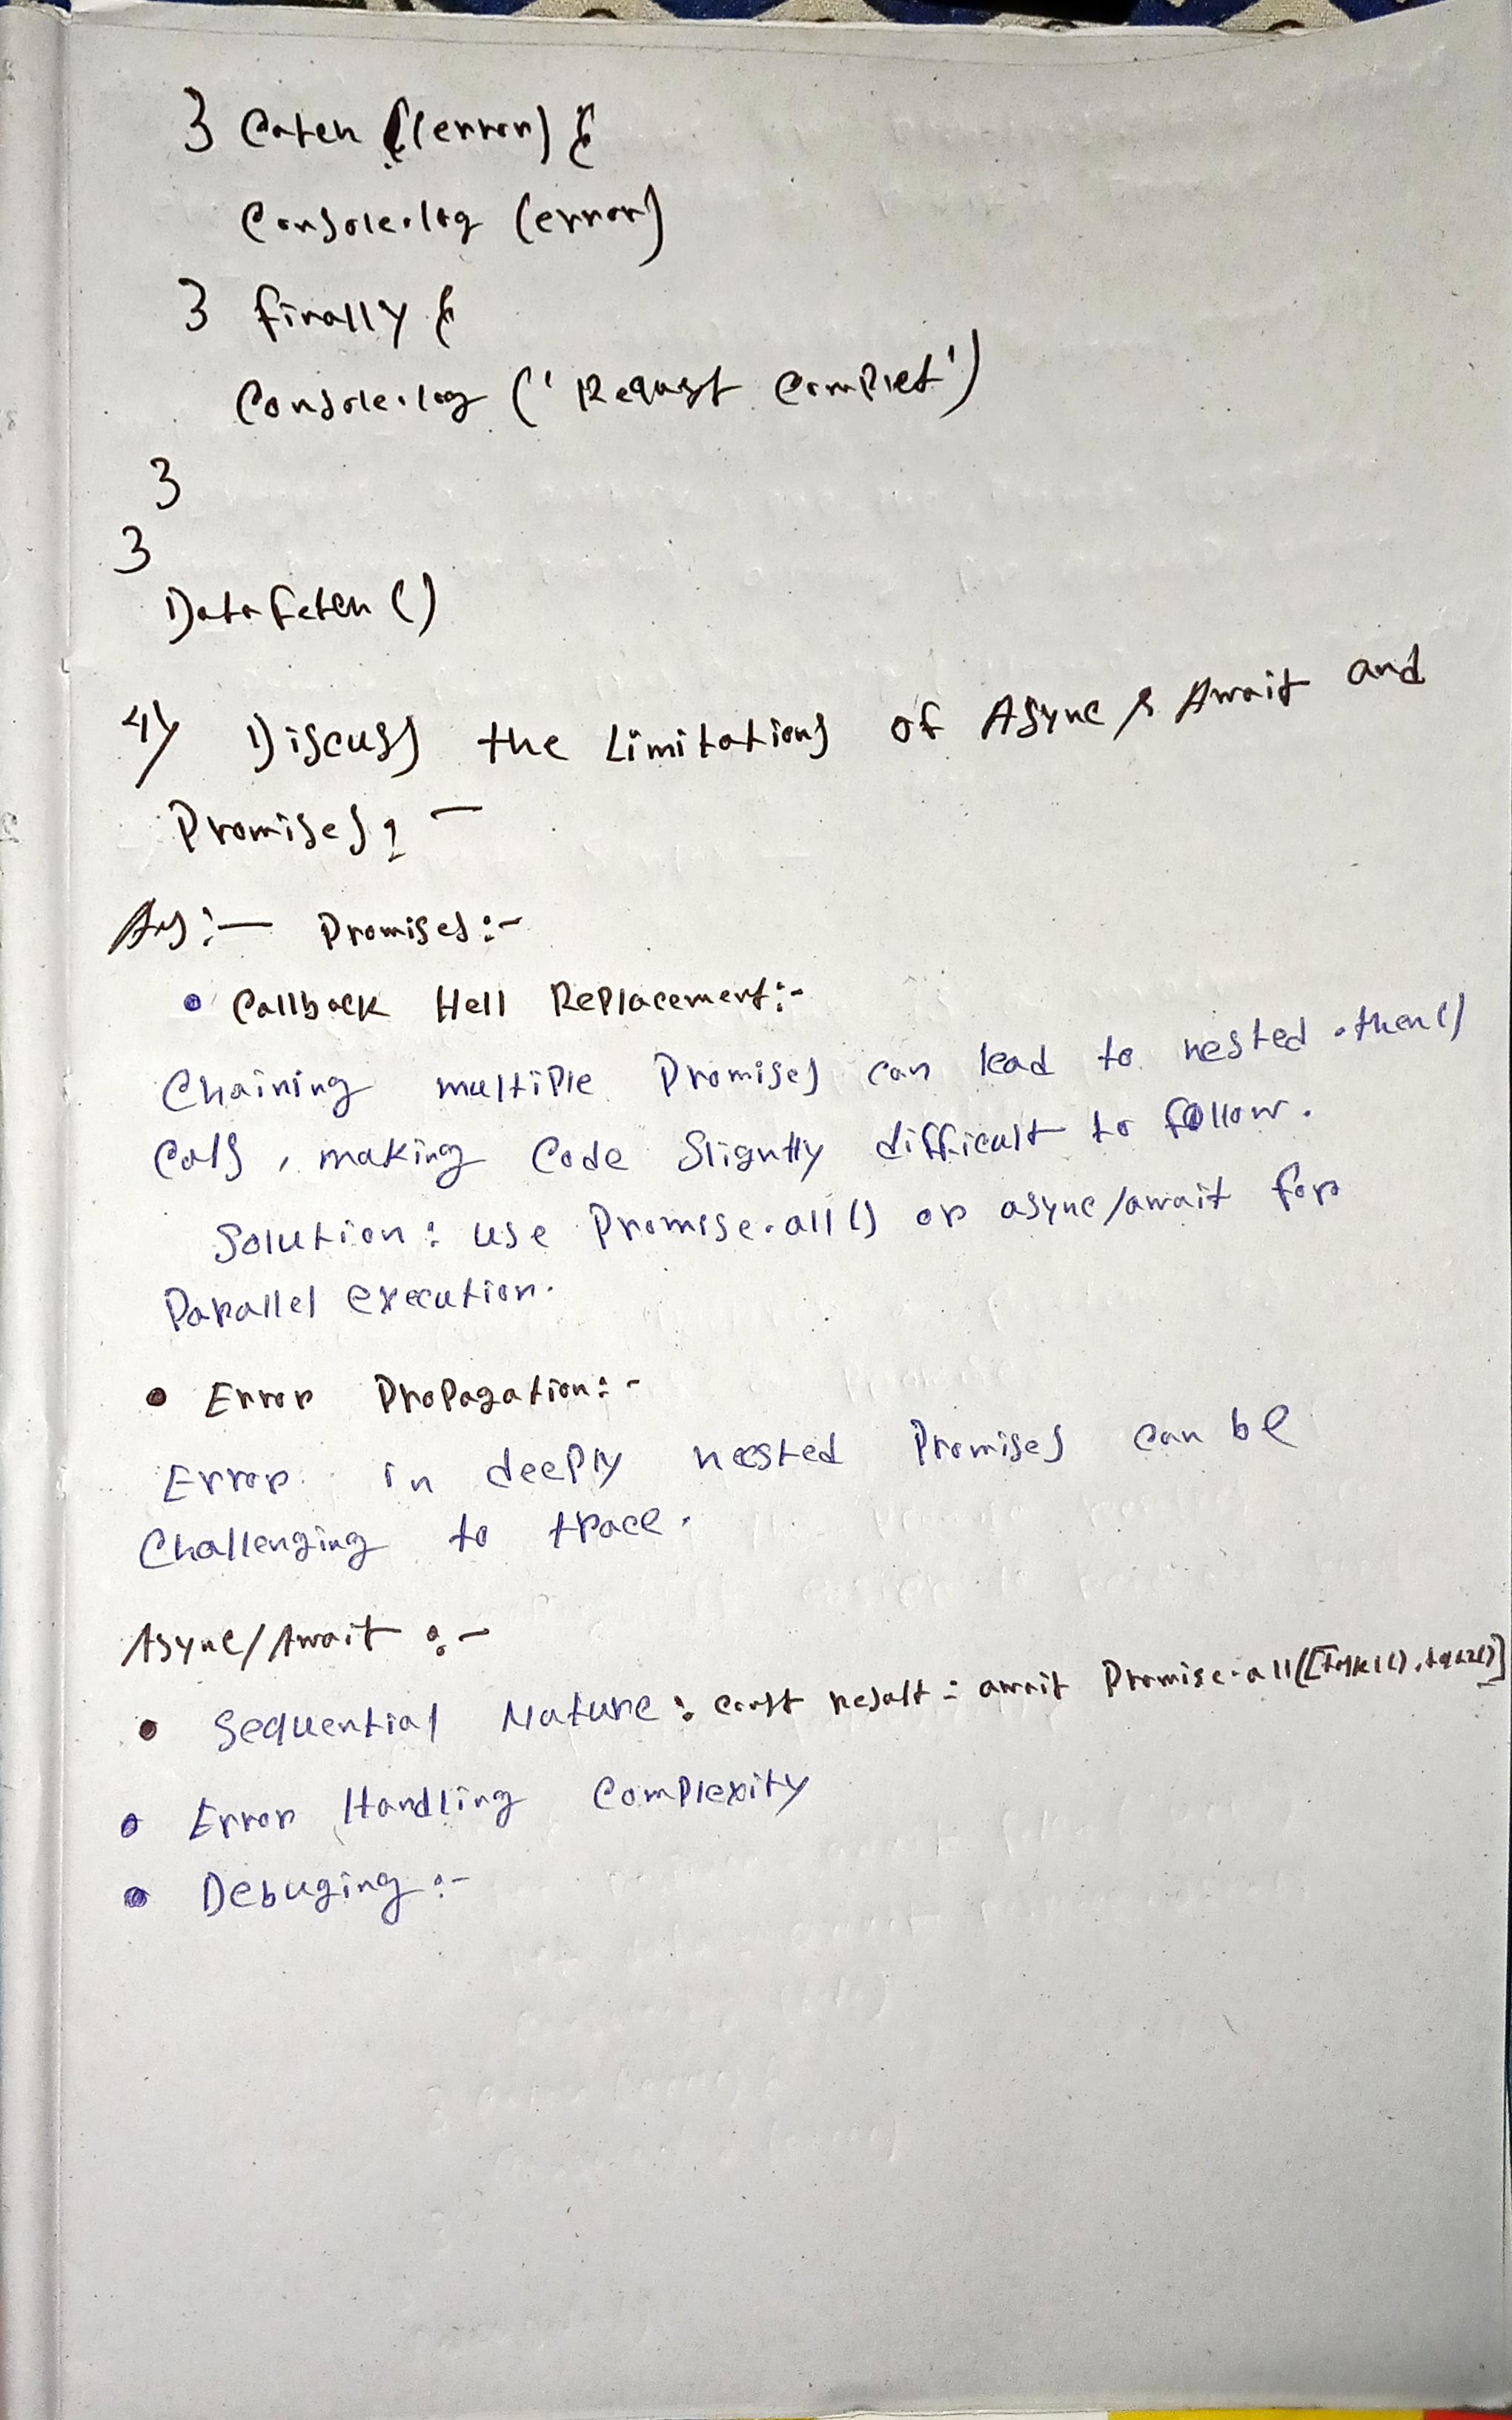 } Catch (error) {
Console.log (error)
} finally {
Console.log ('Requst Complet')
}
}
Datafetch ()
4) Discuss the Limitations of Async & Await and
Promises? -
Ans:- Promises:-
• Callback Hell Replacement:-
Chaining multiple Promises can lead to nested .then()
Calls, making Code Slightly difficult to follow.
Solution: use Promise.all() or async/await for
Parallel execution.
• Error Propagation:-
Error in deeply nested Promises can be
Challenging to trace.
Async/Await :-
• Sequential Nature: const result = await Promise.all([task1(), task2()]
• Error Handling Complexity
• Debuging:-